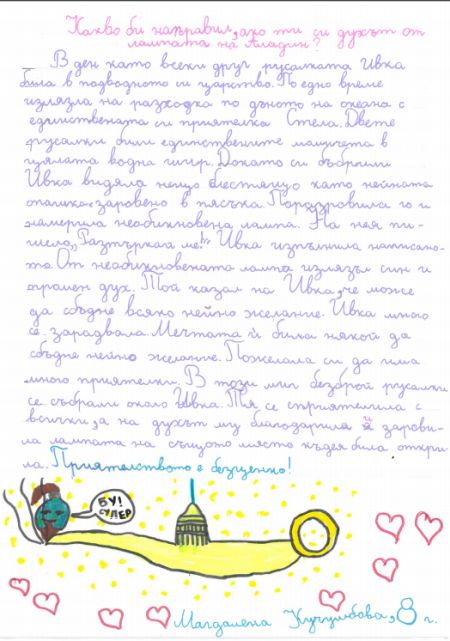 Какво би направил, ако ти си духът от
лампата на Аладин?
В ден като всеки друг русалката Ивка
била в подводното си царство. По едно време
излязла на разходка по дъното на океана с
единствената си приятелка Стела. Двете
русалки били единствените момичета в
цялата водна шир. Докато си бъбрили
Ивка видяла нещо бестящо като нейната
опашка заровено в пясъка. Поразровила го и
намерила необикновена лампа. На нея пи-
шело „Разтъркай ме!“ Ивка изпълнила написано-
то. От необикновената лампа излязъл син и
огромен дух. Той казал на Ивка, че може
да сбъдне всяко нейно желание. Ивка много
се зарадвала. Мечтата ѝ била някой да
сбъдне нейно желание. Пожелала си да има
много приятелки. В този миг безброй русалки
се събрали около Ивка. Тя се сприятелила с
всички, а на духът му благодарила и зарови-
ла лампата на същото място където била откри-
ла. Приятелството е безценно!
БУ!
СУПЕР
Магдалена 8 г.